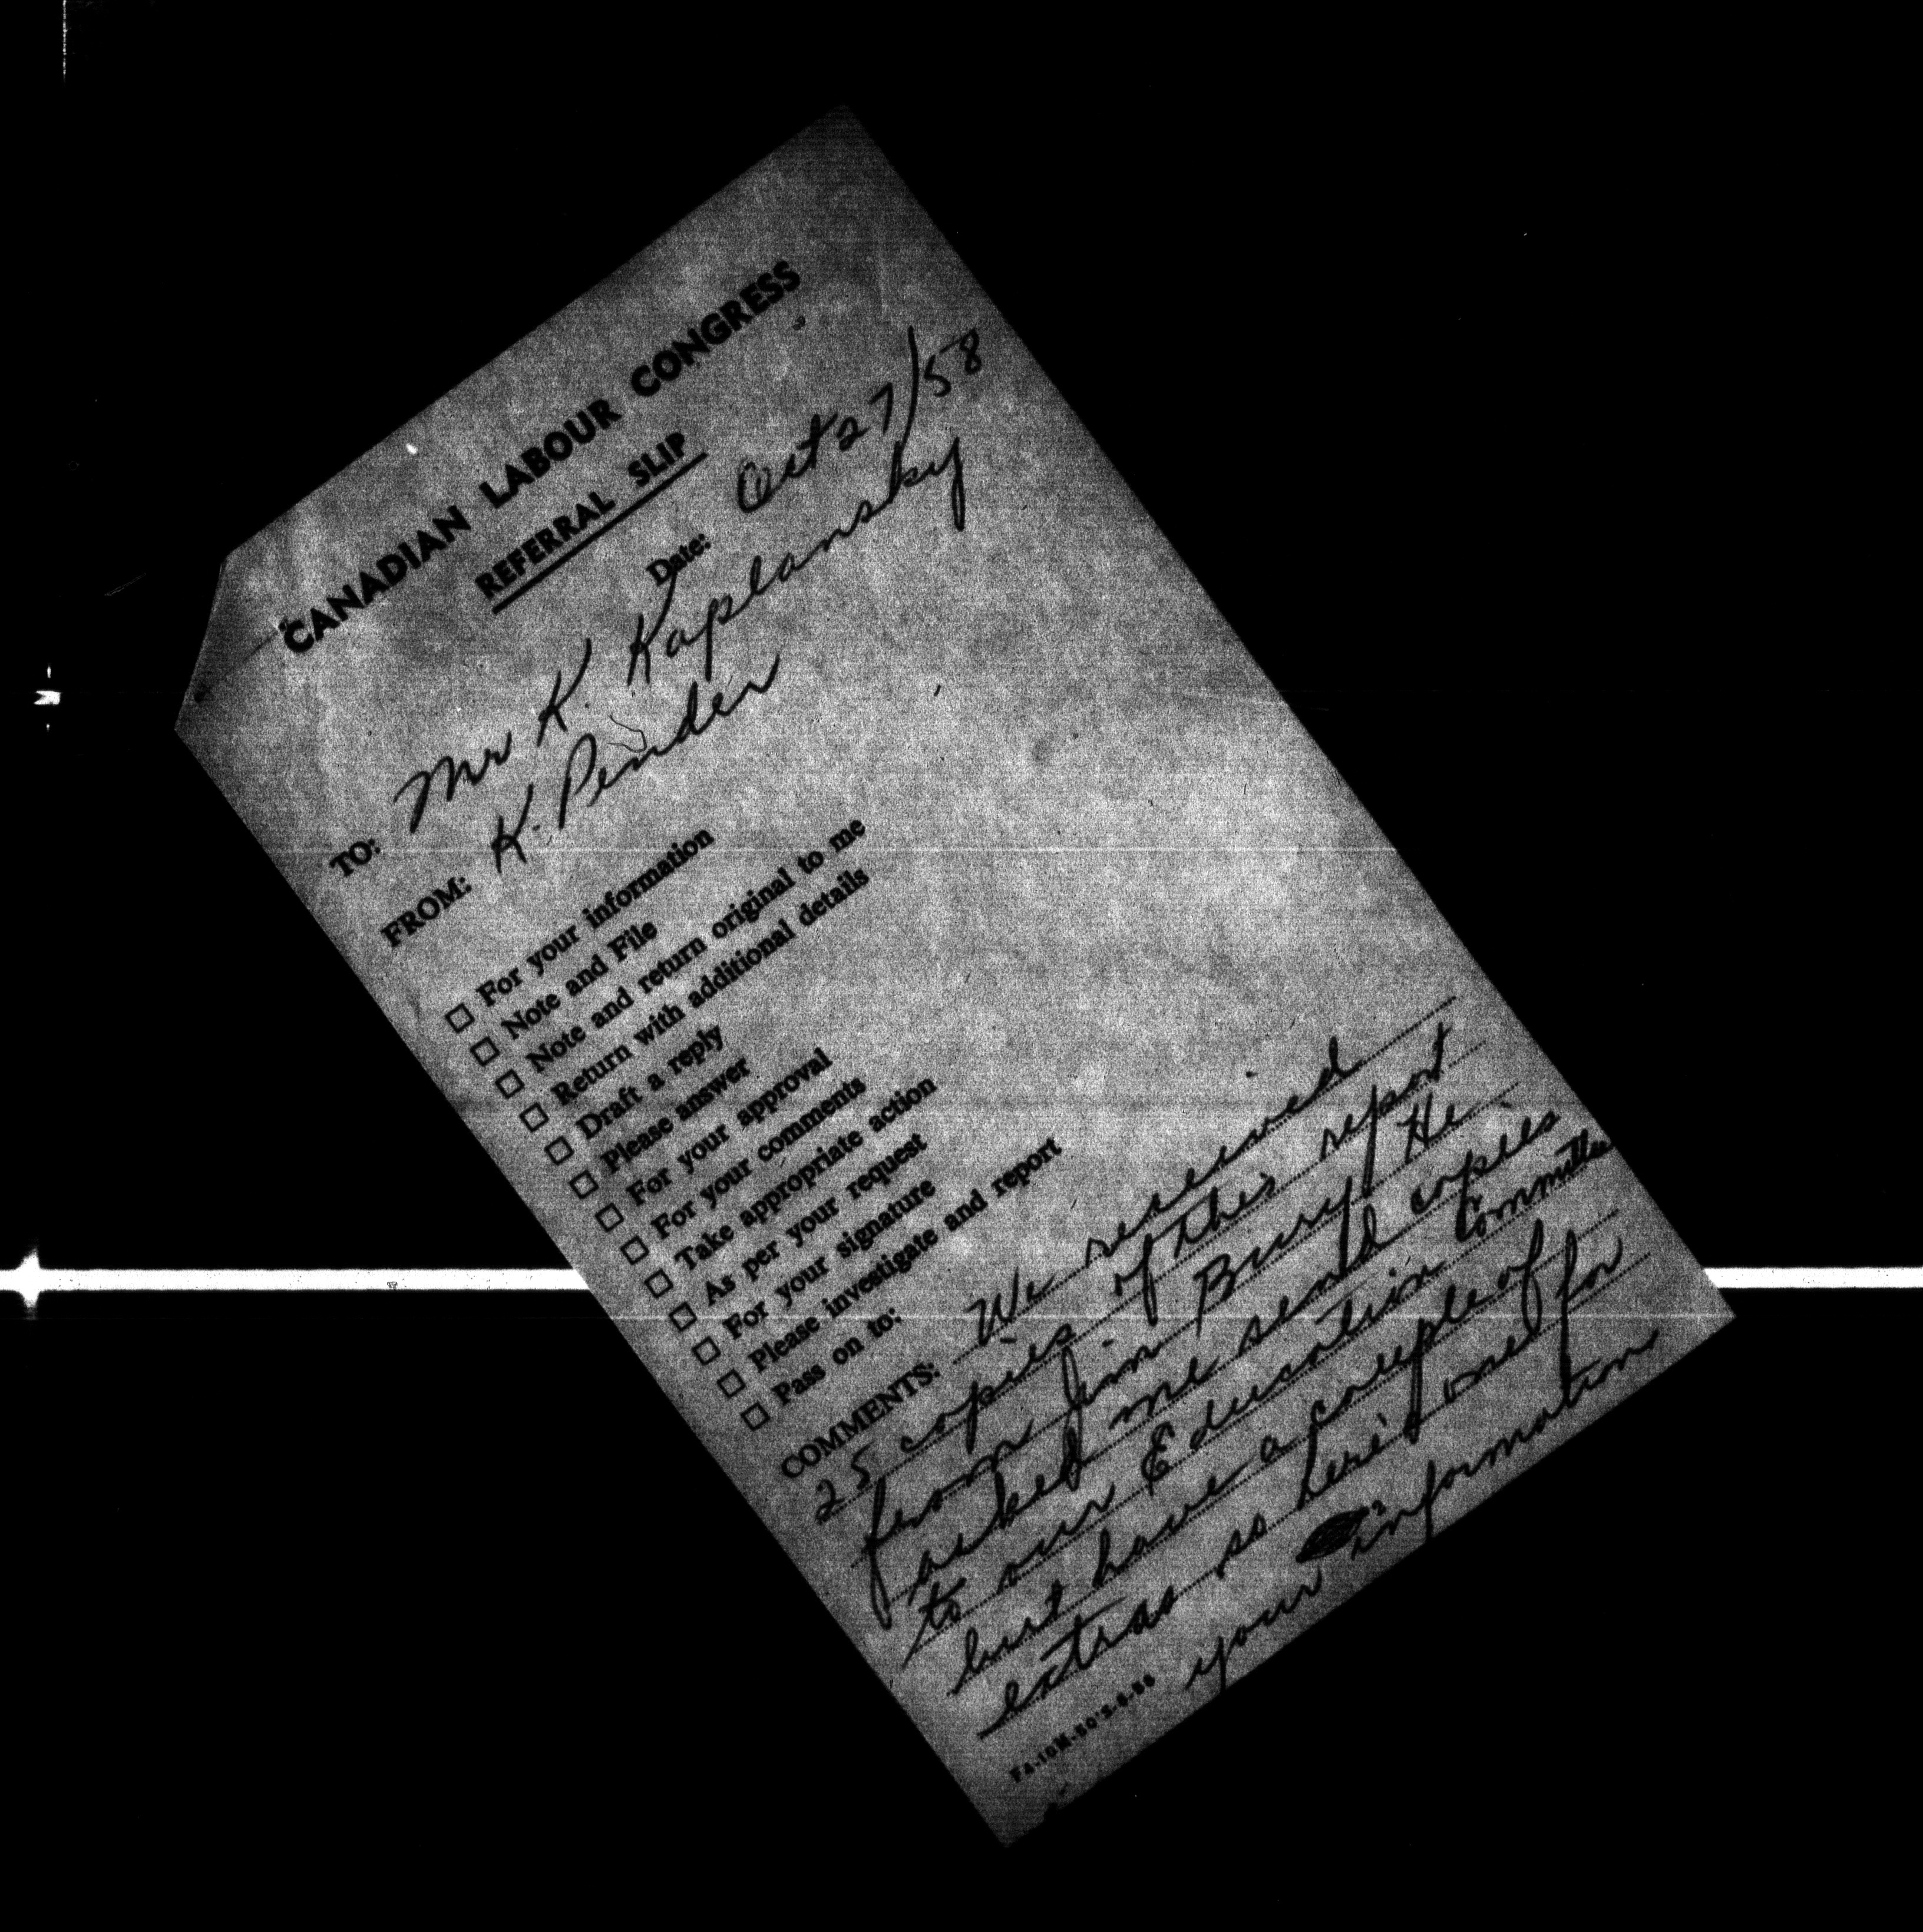 CANADIAN LABOUR CONGRESS
REFERRAL SLIP
Date: Oct 27/58
TO: Mr K. Kaplansky
FROM: K. Pender
☐ For your information
☐ Note and File
☐ Note and return original to me
☐ Return with additional details
☐ Draft a reply
☐ Please answer
☐ For your approval
☐ For your comments
☐ Take appropriate action
☐ As per your request
☐ For your signature
☐ Please investigate and report
☐ Pass on to:
COMMENTS: We received
25 copies of this report
from Jim Bury. He
asked me send copies
to our Education Committee
but have a couple of
extras so here's one for
your information